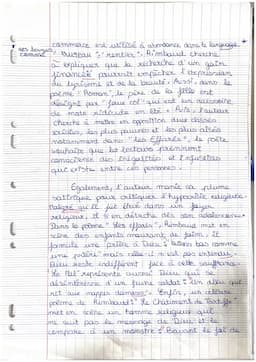 ses larges
commerce est utilisé à abondance dans le language
"bureau", "rentier". Rimbaud cherche
à expliquer que la recherche d'un gain
financier pourrait empêcher l'expression
du lyrisme et de la beauté. Aussi, dans le
poème "Roman", le père de la fille est
désigné par "faux col" qui est un accessoire
de mode ridicule en été. Puis, l'auteur
cherche à mettre en opposition deux classes
sociales, les plus pauvres et les plus aisés
notamment dans "Les Effarés", le poète
souhaite que les lecteurs prennent
conscience des inégalités et injustices
qui existe entre ces personnes.
Également, l'auteur manie sa plume
satirique pour critiquer l'hypocrisie religieuse.
Malgré qu'il fût élevé dans un foyer
religieux, il s'en détache dès son adolescence.
Dans le poème "Les effarés", Rimbaud met en
scène des enfants mourant de faim, ils
formule une prière à Dieu : "tout bas comme
une prière" mais celle-ci n'est pas entendu.
Dieu reste indifférent face à cette souffrance.
"Le Mal" représente aussi Dieu qui se
désintéresse d'un jeune soldat : "Un dieu qui
rit aux nappes damassées". Enfin, un
poème de Rimbaud : "Le Châtiment de Tartufe"
met en scène un homme religieux qui
ne suit pas le message de Dieu. Il est
comparé à un monstre : "Bavant la foi de